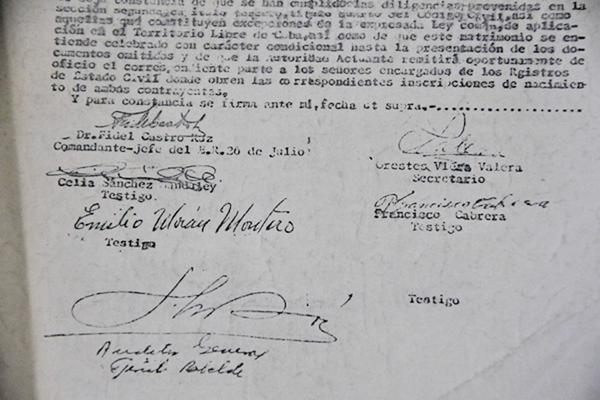 constancia de que se han cumplido las diligencias prevenidas en la
sección segunda, título tercero, título cuarto del Código Civil, así como
aquellas que constituyen excepciones de la expresada Ley común, de aplica-
ción en el Territorio Libre de Cuba, así como de que este matrimonio se en-
tiende celebrado con carácter condicional hasta la presentación de los do-
cumentos omitidos y de que la Autoridad Actuante remitirá oportunamente de
oficio el correspondiente parte a los señores encargados de los Rgistros
de Estado Civil donde obren las correspondientes inscripciones de nacimien-
to de ambos contrayentes.
Y para constancia se firma ante mi, fecha ut supra.-
Dr. Fidel Castro Ruz
Comandante-jefe del E.R. 26 de Julio
Orestes Valera
Secretario
Celia Sánchez Manduley
Testigo
Francisco Cabrera
Testigo
Emilio Morán Montero
Testigo
Testigo
Auditor General
Ejército Rebelde